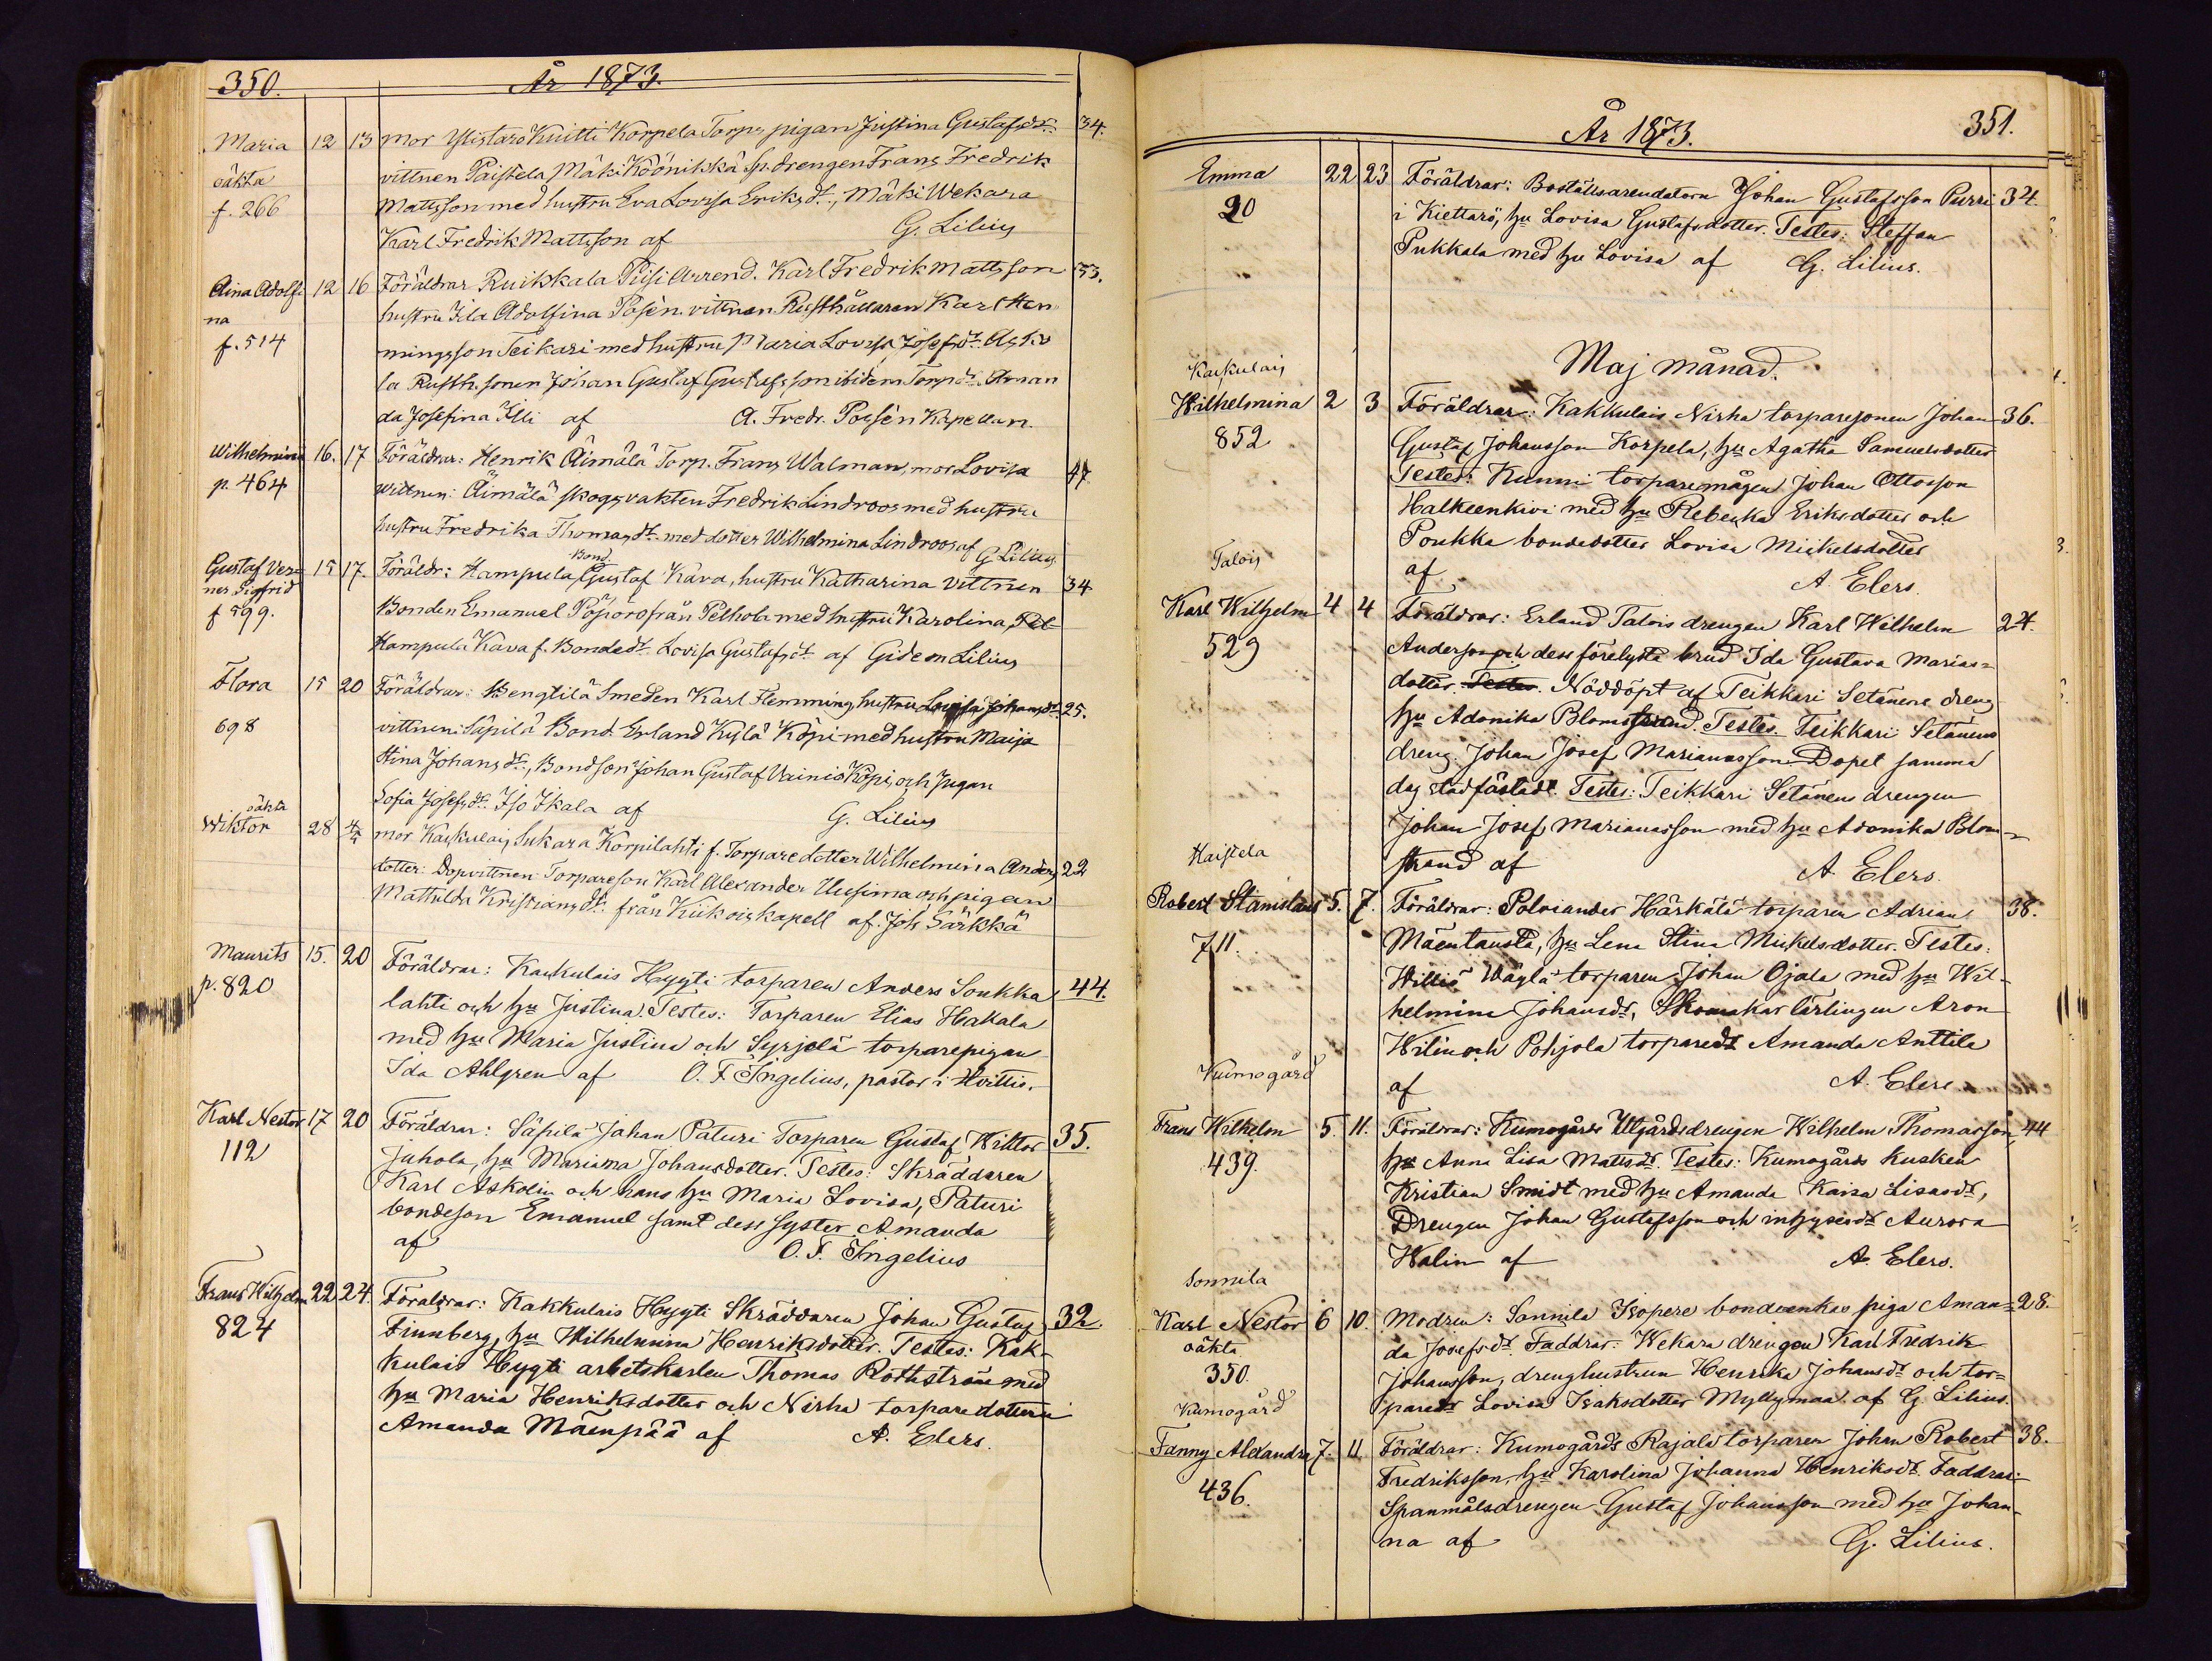 350.
År 1873.
Maria 12 13 mor Ylistaro Kuitti Korpela Torps pigan Justina Gustafsdr 34.
oäkta vittnen Paistela Mäki Köönikkä Sp. drengen Frans Fredrik
f. 266 Mattsson med hustru Eva Lovisa Eriksdr, Mäki Wekara
Karl Fredrik Mattsson af G. Lilius
Aina Adolfi 12 16 Föräldrar Ruikkala Piisi Arrend. Karl Fredrik Mattsson 33.
na hustru Ida Adolfina Posén. vittnen Rusthållaren Karl Hen
f. 514 mingsson Teikari med hustru Maria Lovisa Josefsdr
la Rusth. sonen Johan Gustaf Gustafsson ibidem Torpdr. Aman
da Josefina Illi af A. Fredr. Posén Kapellan.
Wilhelmina 16. 17 Föräldrar: Henrik Äimälä Torp. Frans Walman, mor Lovisa 47
p. 464 Wittnen: Äimälä skogsvakten Fredrik Lindroos med hustru
hustru Fredrika Thomasdr med dotter Wilhelmina Lindroos af G Lilius
Gustaf Ver= 15 17. Föräldr: Hampula Bond Gustaf Kava, hustru Katharina Vittnen 34
ner Sigfrid Bonden Emanuel Pöpörö från Pelhola med hustru Karolina, Pel
f 599. Hampula Kava f. Bondedr Lovisa Gustafsdr af Gideon Lilius
Flora 15 20 Föräldrar: Bengtilä Smeden Karl Flemming, hustru Lovisa Johansdr 25.
698 vittnen: Säpilä Bond. Erland Kylä Köpi med hustru Maija
Stina Johansdr, Bondson Johan Gustaf Vainio Köpi, och Pigan
Sofia Josefsdr Iso Ikala af G. Lilius
oäkta
Wiktor 28 4/5 mor Kakkulais Sukara Korpilahti f. Torparedotter Wilhelmina Anders 22
dotter: Dopvittnen Torpareson Karl Alexander Uusima och pigan
Mathilda Kristiansdr från Kiikois kapell af. Joh. Särkkä
Maurits 15. 20 Föräldrar: Kakkulais Hyyti torparen Anders Soukka 44.
p. 820 lahti och hu Justina. Testes: Torparen Elias Hakala
med hu Maria Justina och Syrjelä torparepigan
Ida Ahlgren af O. F. Ingelius, pastor i Hvittis.
Karl Nestor 17 20 Föräldrar: Säpilä Johan Paturi Torparen Gustaf Wiktor 35.
112 Juhola, hu Mariana Johansdotter. Testes: Skräddaren
Karl Askolin och hans hu Maria Lovisa, Paturi
bondeson Emanuel samt dess syster Amanda
af O. F. Ingelius
Frans Wilhelm 22 24. Föräldrar: Kakkulais Hyyti Skräddaren Johan Gustaf 32.
824 Finnberg, hu Wilhelmina Henriksdotter. Testes: Kak-
kulais Hygti arbetskarlen Thomas Rothström med
hu Maria Henriksdotter och Nirha torparedottern
Amanda Mäenpää af A. Elers.
År 1873. 351.
Emma 22 23 Föräldrar: Boställsarendatorn Johan Gustafsson Purri 34.
20 i Kiettarö, hu Lovisa Gustafsdotter. Testes: Steffan
Pukkala med hu Lovisa af G. Lilius.
Maj månad.
Kakkulais
Wilhelmina 2 3 Föräldrar: Kakkulais Nirha torparesonen Johan 36.
852 Gustaf Johansson Korpela, hu Agatha Samuelsdotter
Testes: Kunni torparemågen Johan Ottosson
Halkeenkivi med hu Rebecka Eriksdotter och
Poukka bondedotter Lovisa Mickelsdotter
af A. Elers.
Talois
Karl Wilhelm 4 4 Föräldrar: Erland Talois drengen Karl Wilhelm 24.
529 Anderson och dess förelysta brud Ida Gustava Marias=
dotter. Testes. Nöddöpt af Teikkari Setänens dreng
hu Adonika Blomstrand. Testes. Teikkari Setänens
dreng Johan Josef Marianasson. Dopet samma
dag stadfästadt. Testes: Teikkari Setänens drengen
Johan Josef Marianasson med hu Adonika Blom=
strand af A. Elers.
Haistela
Robert Stanislaus 5. 7. Föräldrar: Polviander Härkälä torparen Adrian 38.
711. Mäentausta, hu Lena Stina Mickelsdotter. Testes:
Willis torparen Johan Ojala med hu Wil-
helmina Johansdr, Skomakarlärlingen Aron
Wilén och Pohjola torparedr Amanda Anttila
af A. Elers
Kumogård
Frans Wilhelm 5. 11. Föräldrar: Kumogårds Utgårdsdrengen Wilhelm Thomasson, 44
439. hu Anna Lisa Mattsdr. Testes: Kumogårds kusken
Kristian Smidt med hu Amanda Kaisa Lisasdr,
Drengen Johan Gustafsson och inhysesdr Aurora
Walin af A. Elers.
Sonnila
Karl Nestor 6 10. Modren: Sonnila Isopere bondeenkas piga Aman= 28.
oäkta da Josefsdr. Faddrar: Wekara drengen Karl Fredrik
350. Johansson, drenghustrun Henrika Johansdr och tor=
paredr Lovisa Isaksdotter Myllymaa af G. Lilius.
Kumogård
Fanny Alexandra 7. 11. Föräldrar: Kumogårds Rajala torparen Johan Robert 38.
436. Fredriksson, hu Karolina Johanna Henriksdr. Faddrar:
Spanmålsdrengen Gustaf Johansson med hu Johan-
na af G. Lilius.